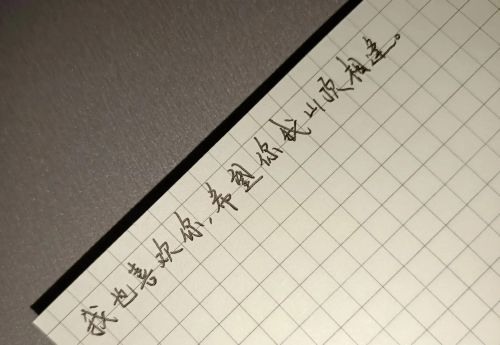 我也喜欢你，希望你我山顶相逢。